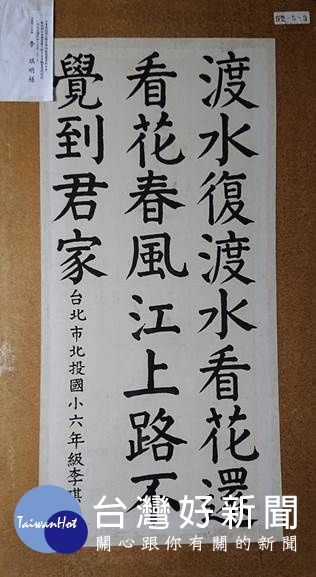 渡水復渡水看花還
看花春風江上路不
覺到君家
台北市北投國小六年級李琪
52-5-3
TaiwanHot
台灣好新聞
關心跟你有關的新聞